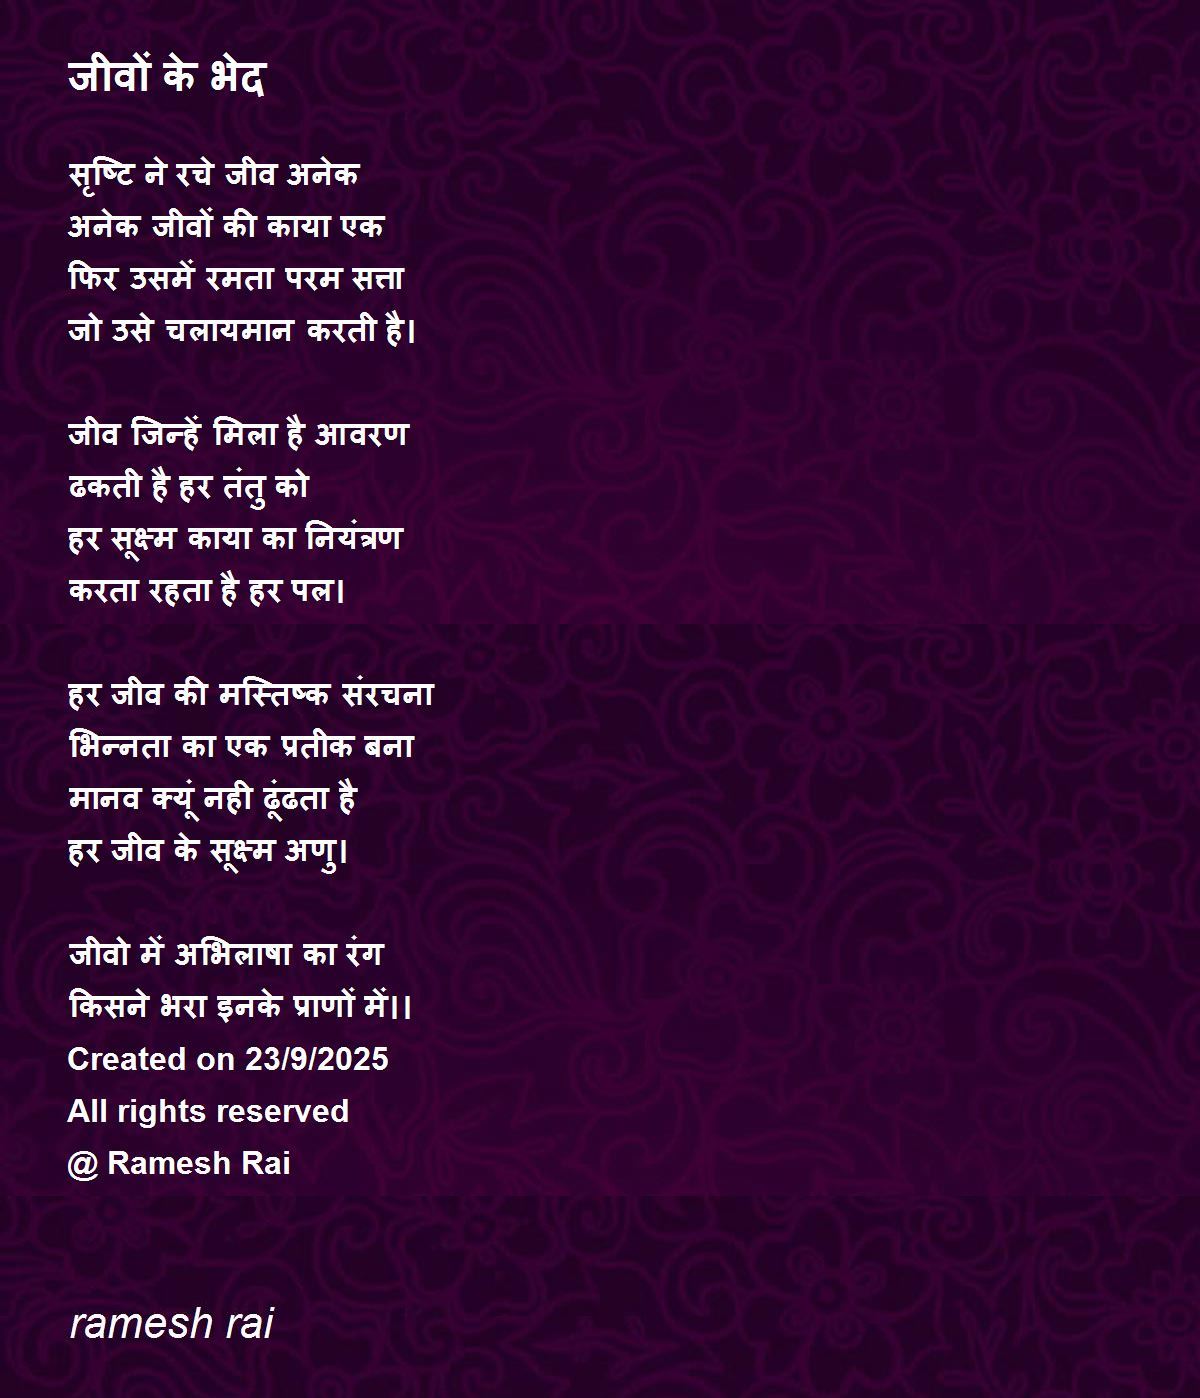 जीवों के भेद
सृष्टि ने रचे जीव अनेक
अनेक जीवों की काया एक
फिर उसमें रमता परम सत्ता
जो उसे चलायमान करती है।
जीव जिन्हें मिला है आवरण
ढकती है हर तंतु को
हर सूक्ष्म काया का नियंत्रण
करता रहता है हर पल।
हर जीव की मस्तिष्क संरचना
भिन्नता का एक प्रतीक बना
मानव क्यूं नही ढूंढता है
हर जीव के सूक्ष्म अणु।
जीवो में अभिलाषा का रंग
किसने भरा इनके प्राणों में।।
Created on 23/9/2025
All rights reserved
@ Ramesh Rai
ramesh rai